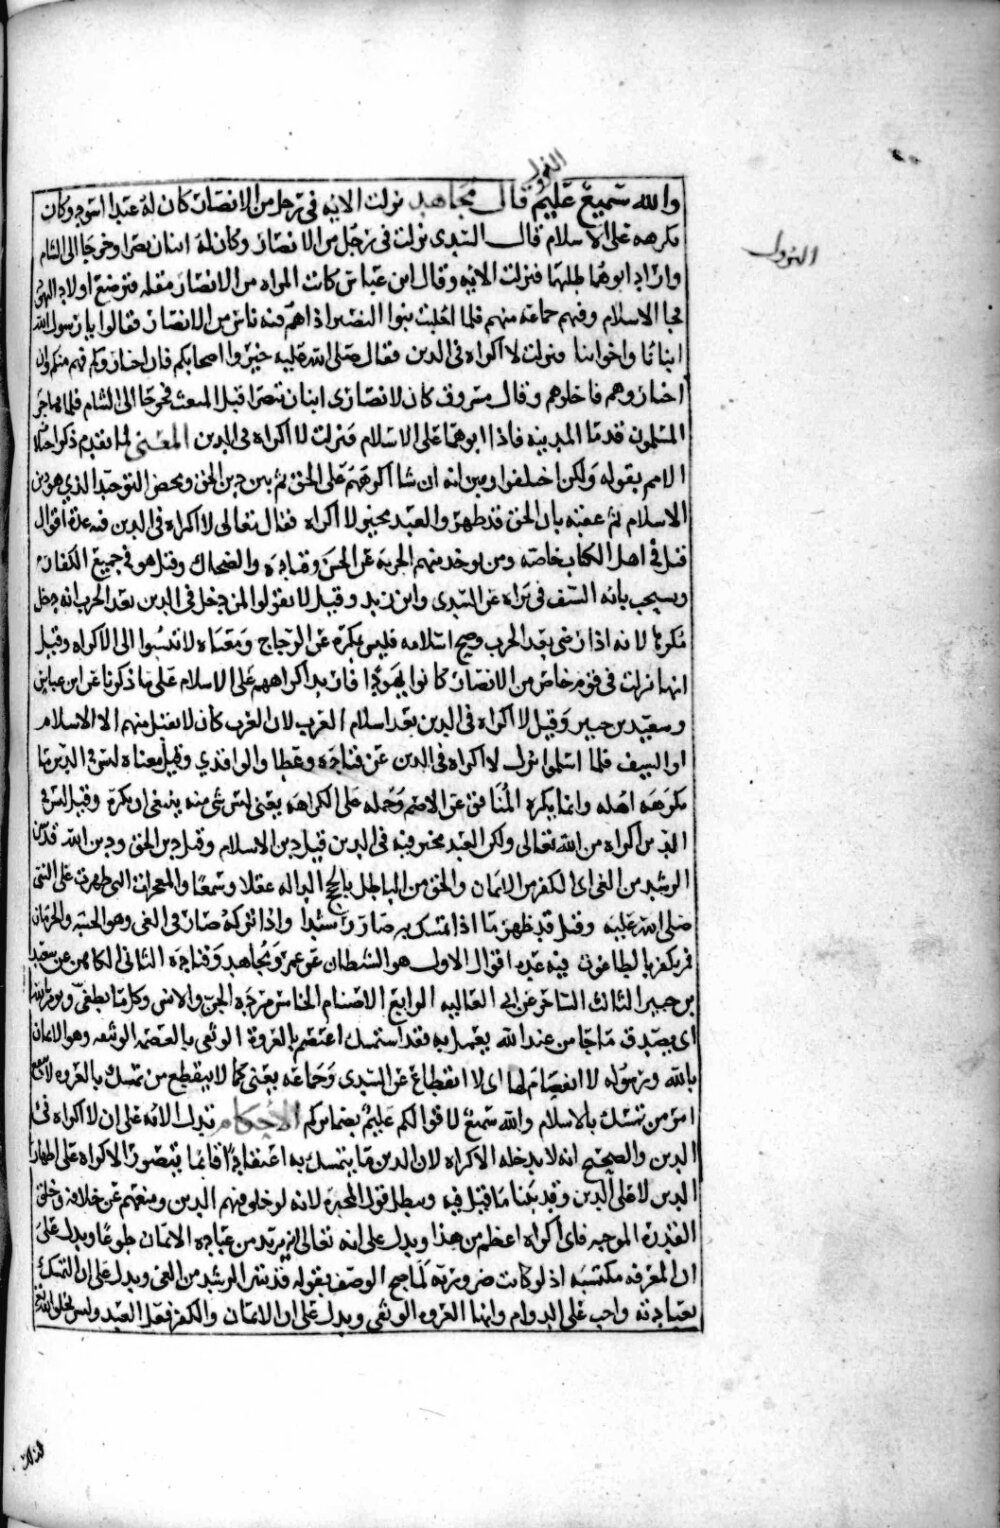 النزول
النزول
والله سميع عليم قال مجاهد نزلت الايه في رجل من الانصار كان له عبدا اسود وكان
يكرهه على الاسلام قال السدى نزلت في رجل من الانصار وكان له ابنان تنصرا وخرجا الى الشام
واراد ابوهما طلبهما فنزلت الايه وقال ابن عباس كانت المراه من الانصار مقله فترضع اولاد اليهود
فجا الاسلام وفيهم جماعه منهم فلما اجليت بنوا النضير اذاهم فيه ناس من الانصار فقالوا يا رسول الله
ابناونا واخواننا فنزلت لا اكراه في الدين فقال صلى الله عليه خيروا اصحابكم فان اختاروكم فهم منكم وان
اختاروهم فاجلوهم وقال مسروق كان لانصارى ابنان تنصرا قبل المبعث فخرجا الى الشام فلما هاجر
المسلمون قدما المدينه فاذا ابوهما على الاسلام فنزلت لا اكراه في الدين المعنى لما تقدم ذكر اختلاف
الامم بقوله ولكن اختلفوا وبين انه ان شا اكرههم على الحق ثم بين دين الحق ومحض التوحيد الذي هو دين
الاسلام ثم عقبه بان الحق قد ظهر والعبد مخير لا اكراه فقال تعالى لا اكراه في الدين فيه عدة اقوال
قيل في اهل الكتاب خاصه ومن يوخذ منهم الجزيه عن الحسن وقتاده والضحاك وقيل هو في جميع الكفار
وينسخ بايه السيف في براه عن السدى وابن زيد وقيل لا تقولوا لمن دخل في الدين بعد الحرب انه دخل
مكرها لانه اذا رضى بعد الحرب وصح اسلامه فليس بمكره عن الزجاج ومعناه لا تنسبوا الى الاكراه وقيل
انها نزلت في قوم خاص من الانصار كانوا يهودا فاريد اكراههم على الاسلام على ما ذكرنا عن ابن عباس
وسعيد بن جبير وقيل لا اكراه في الدين بعد اسلام العرب لان العرب كان لا يقبل منهم الا الاسلام
او السيف فلما اسلموا نزل لا اكراه في الدين عن قتاده وعطا والواقدي وقيل معناه ليس في الدين ما
يكرهه اهله وانما يكره المنافق عن الاصم وحمله على الكراهه يعنى ليس شي منه ينبغى ان يكره وقيل ليس في
الدين اكراه من الله تعالى ولكن العبد مخير فيه في الدين قيل دين الاسلام وقيل دين الحق ودين الله قد تبين
الرشد من الغى اى الكفر من الايمان والحق من الباطل بالحجج الداله عقلا وسمعا والمعجزات التى ظهرت على النبى
صلى الله عليه وقيل قد ظهر ما اذا تمسك به صار راشدا واذا تركه صار في الغى وهو الخيبه والحرمان
فمن يكفر بالطاغوت فيه عده اقوال الاول هو الشيطان عن عمر ومجاهد وقتاده الثانى الكاهن عن سعيد
بن جبير الثالث الساحر عن ابى العاليه الرابع الاصنام الخامس مرده الجن والانس وكلما يطغى ويومن بالله
اى يصدق ما جا من عند الله يعمل به فقد استمسك اعتصم بالعروة الوثقى بالعصمه الوثيقه وهو الايمان
بالله ورسوله لا انفصام لها اى لا انقطاع عن السدى وجماعه يعنى كما لا ينقطع من تمسك بالعروه لا ينقطع
امر من تمسك بالاسلام والله سميع لاقوالكم عليم بضمائركم الاحكام تدل الايه على ان لا اكراه في
الدين والصحيح انه لا يدخله الاكراه لان الدين ما يتمسك به اعتقادا فانما يتصور الاكراه على اظهار
الدين لا على الدين وقد بينا ما قيل فيه ويبطل قول المجبرة لانه لو خلق فيهم الدين ومنعهم عن خلافه وخلق
القدرة الموجبه فاى اكراه اعظم من هذا ويدل على انه تعالى يريد من عباده الايمان طوعا ويدل على
ان المعرفه مكتسبه اذ لو كانت ضروريه لما صح الوصف بقوله قد تبين الرشد من الغى ويدل على ان التمسك
بعبادته واجب على الدوام وانها العروه الوثقى ويدل على ان الايمان والكفر فعل العبد وليس بخلق الله